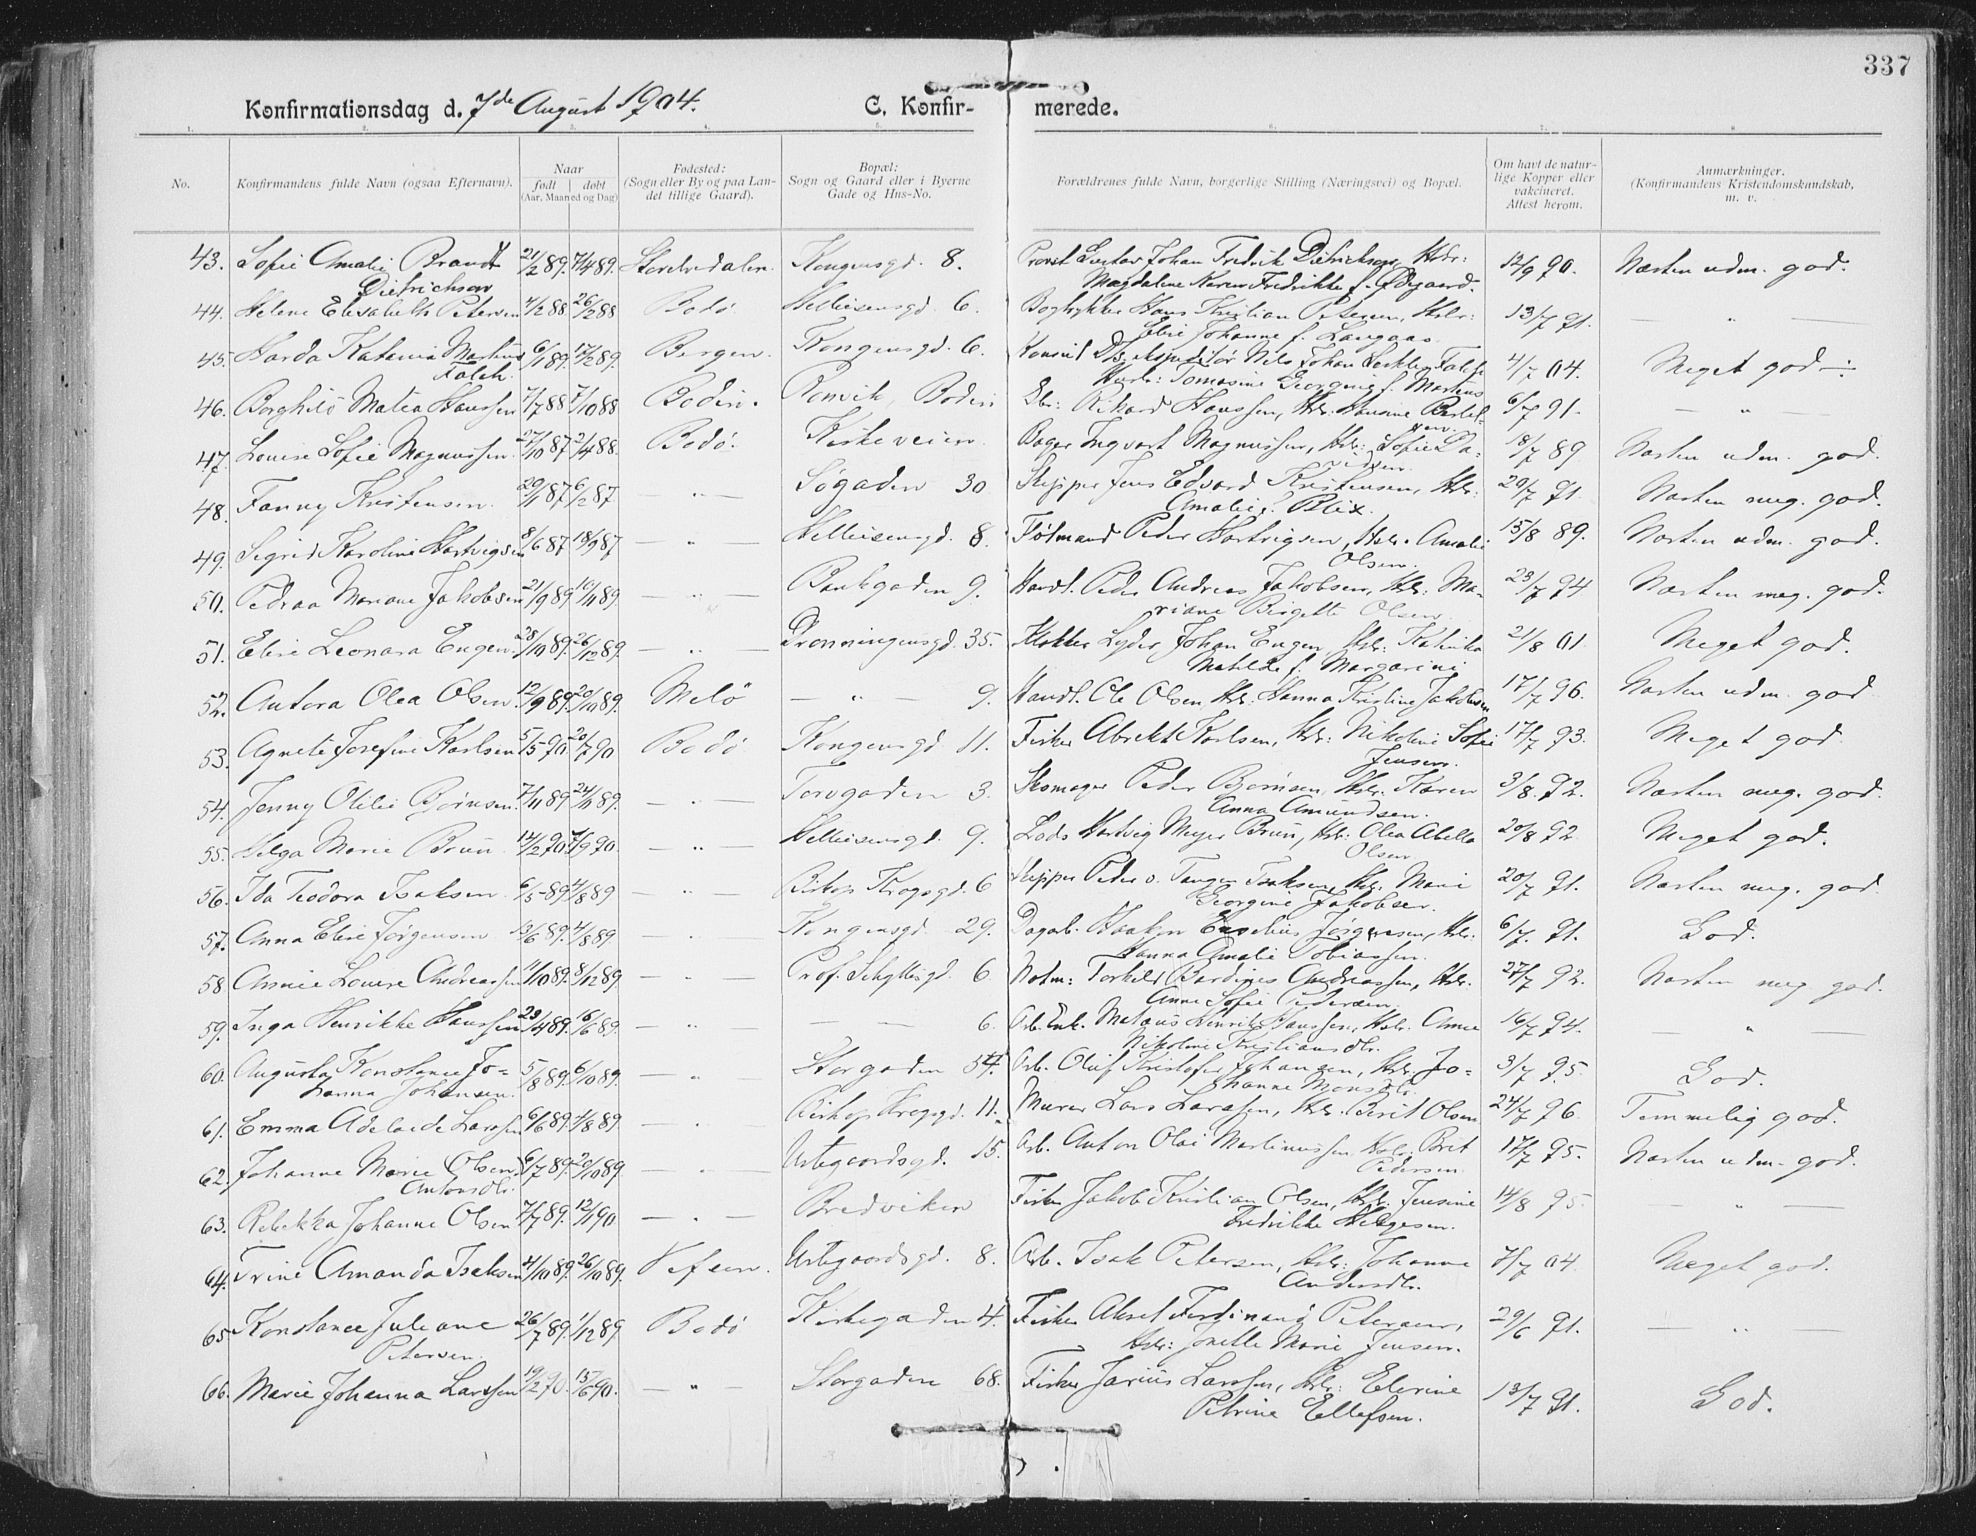 337
Konfirmationsdag d. 7de August 1904. C. Konfir- merede.
1. 2. 3. 4. 5. 6. 7. 8
No. Konfirmandens fulde Navn (ogsaa Efternavn). Naar født | døbt (Aar, Maaned og Dag) Fødested: (Sogn eller By og paa Landet tillige Gaard). Bopæl: Sogn og Gaard eller i Byerne Gade og Hus-No. Forældrenes fulde Navn, borgerlige Stilling (Næringsvei) og Bopæl. Om havt de naturlige Kopper eller vakcineret. Attest herom. Anmærkninger. (Konfirmandens Kristendomskundskab, m. v.
43. Sofie Amalie Brandt 21/2 89. 7/4 89. Kongensgd. 8. Provst Gustav Johan Fredrik Dietrichson, Hstr: 12/9 90. Næsten udm. god.
Dietrichson Magdalene Karen Fredrikke f. Ødegaard.
44. Helene Elisabeth Petersen 4/2 88 26/2 88 Bodø. Hellisensgd. 6. Bogtrykker Hans Kristian Petersen, Hstr: 13/7 91. — " —
Elise Johanne f. Langaas.
45. Harda Katarina Martens 6/1 89. 17/2 89. Bergen. Kongensgd. 6. Nils Johan Falch 4/7 04. Meget god
Falch. Hustr: Tomasine Georgine f. Martens
46. Borghild Matea Hanssen 7/7 88 7/10 88 Bodin. Rønvik, Bodin Rikard Hanssen, Hstr. Hansine Bertel- 6/7 91. — " —
sen.
47. Louise Sofie Magnussen. 27/10 87 2/4 88. Bodø. Kirkeveien. Bager Ingvart Magnussen, Hstr: Sofie Da- 18/7 89 Næsten udm. god.
vidsen.
48. Fanny Kristensen. 29/1 87 6/2 87 — " — Søgaden 30 Skipper Jens Edvard Kristensen, Hstr: 20/7 91 Næsten meg. god.
Amalie f. Blix.
49. Sigrid Karoline Hartvigsen 8/6 87 18/9 87 — " — Hellisensgd. 8. Peder Hartvigsen, Hstr. Amalie 15/8 89. Næsten udm. god.
Olsen.
50. Pedraa Mariane Jakobsen 21/9 89. 10/11 89. — " — Bankgaden 9. Handl. Peder Andreas Jakobsen, Hstr: Ma- 23/7 94 Næsten meg. god.
riane Birgette Olsen.
51. Elise Leonara Eugen. 28/10 89. 26/12 89. — " — Dronningensgd. 35. Klokker Lyder Johan Eugen, Hstr. Katinka 21/8 01 Meget god.
Matilde f. Margarini
52. Antora Olea Olsen. 12/9 89. 20/10 89. Melø — " — 9. Handl. Ole Olsen, Hstr: Hanna Kristine Jakobsen 17/7 96. Næsten udm. god
53. Agnete Josefine Karlsen 5/5 90 20/7 90 Bodø Kongensgd 11. Fisker Abrekt Karlsen, Hstr: Nikoline Sofie 17/7 93. Meget god
Jensen.
54. Jenny Otilie Bjørnsen. 7/11 89. 24/11 89. — " — Torvgaden 3. Skomager Peder Bjørnsen, Hstr. Karen 3/8. 92. Næsten meg. god.
Anna Amundsen.
55. Helga Marie Bruun 14/2 90. 7/9 90. — " — Hellisensgd. 9. Lods Hartvig Meyer Bruun, Hstr: Olea Abella 20/8 92 Meget god.
Olsen
56. Ida Teodora Isaksen. 6/5 89 4/8 89 — " — Biskop Krogsgd. 6 Skipper Peder v. Tangen Isaksen, Hstr. Marie 20/7 91. Næsten meg. god
Georgine Jakobsen.
57. Anna Elise Jørgensen 13/6 89. 4/8 89. — " — Kongensgd. 29. Dagarb. Haakon Jørgensen, Hstr: 6/7. 91. God.
Hanna Amalie Tobiassen.
58. Annie Lovise Andreassen 11/10 89. 8/12 89. — " — Prof. Schyttesgd. 6 Torkild Bardines Andreassen, Hstr. 27/7 92. Næsten meg god.
Anne Sofie Pedersen
59. Inga Henrikke Hanssen 23/4 89. 16/6 89. — " — — — 6. Arb. Enk. Mataus Henrik Hanssen, Hstr. Anne 16/7 94. — " —
Nikoline Kristiansdtr.
60. Augusta Konstance Jo= 5/8 89. 6/10 89. — " Storgaden 54. Arb. Oluf Kristofer Johansen, Hstr. Jo= 3/7 95. God.
hanna Johansen. hanne Monsdtr.
61. Emma Adelaide Larssen 6/6 89. 4/8 89. — " Biskop Krogsgd. 11. Murer Lars Larssen, Hstr. Berit Olsen 24/7 96. Temmelig god.
62. Johanne Marie (Olsen) 6/7 89. 20/10 89. — " — Urtegaardsgd. 15. Arb. Anton Olai Martinussen, Hstr. Brit 17/7 95. Næsten udm. god.
Antonsdtr. Pedersen
63. Rebekka Johanne Olsen 7/7 89. 12/1 90 — " — Bredviken Fisker Jakob Kristian Olsen, Hstr. Jensine 14/8 95. — " —
Fredrikke Helgesen.
64. Trine Amanda Isaksen 4/10 89. 26/10 89. Vefsen. Urtegaardsgd. 8. Arb. Isak Petersen, Hstr. Johanne 7/7 04 Meget god.
Andersdtr.
65 Konstance Juliane 26/7 89. 1/12 89 Bodø Kirkegaden 4. Fisker Aksel Ferdinand Petersen, 29/6 91. — " —
Petersen. Hstr: Jonette Marie Jensen.
66. Marie Johanna Larssen 19/2 90. 15/6 90. — " — Storgaden 68. Fisker Jarius Larssen, Hstr: Elerine 13/7 91. God.
Petrine Ellefsen.